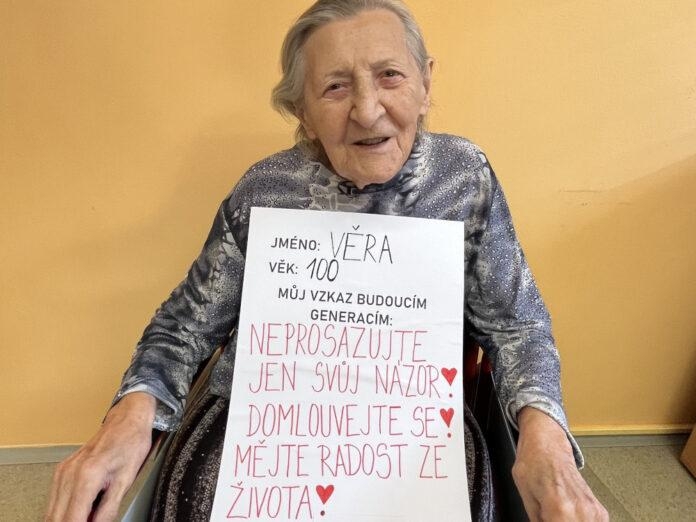 JMÉNO: VĚRA
VĚK: 100
MŮJ VZKAZ BUDOUCÍM
GENERACÍM:
NEPROSAZUJTE
JEN SVŮJ NÁZOR!
DOMLOUVEJTE SE!
MĚJTE RADOST ZE
ŽIVOTA!